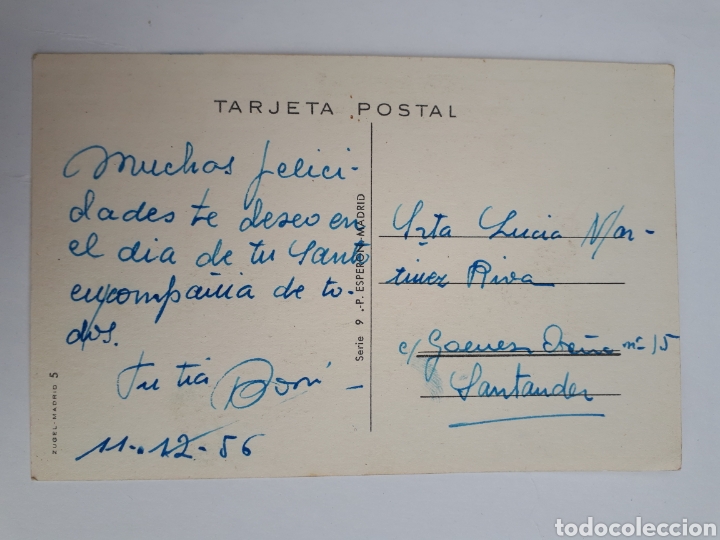 TARJETA POSTAL
Muchas felici-
dades te deseo en
el dia de tu Santo
en compañia de to-
dos.
Tu tia
11-12-56
ZUGEL-MADRID 5
Serie 9 .-P. ESPERON-MADRID
Srta Lucia Mar-
tinez Riva
c/ nº 15
Santander
todocoleccion